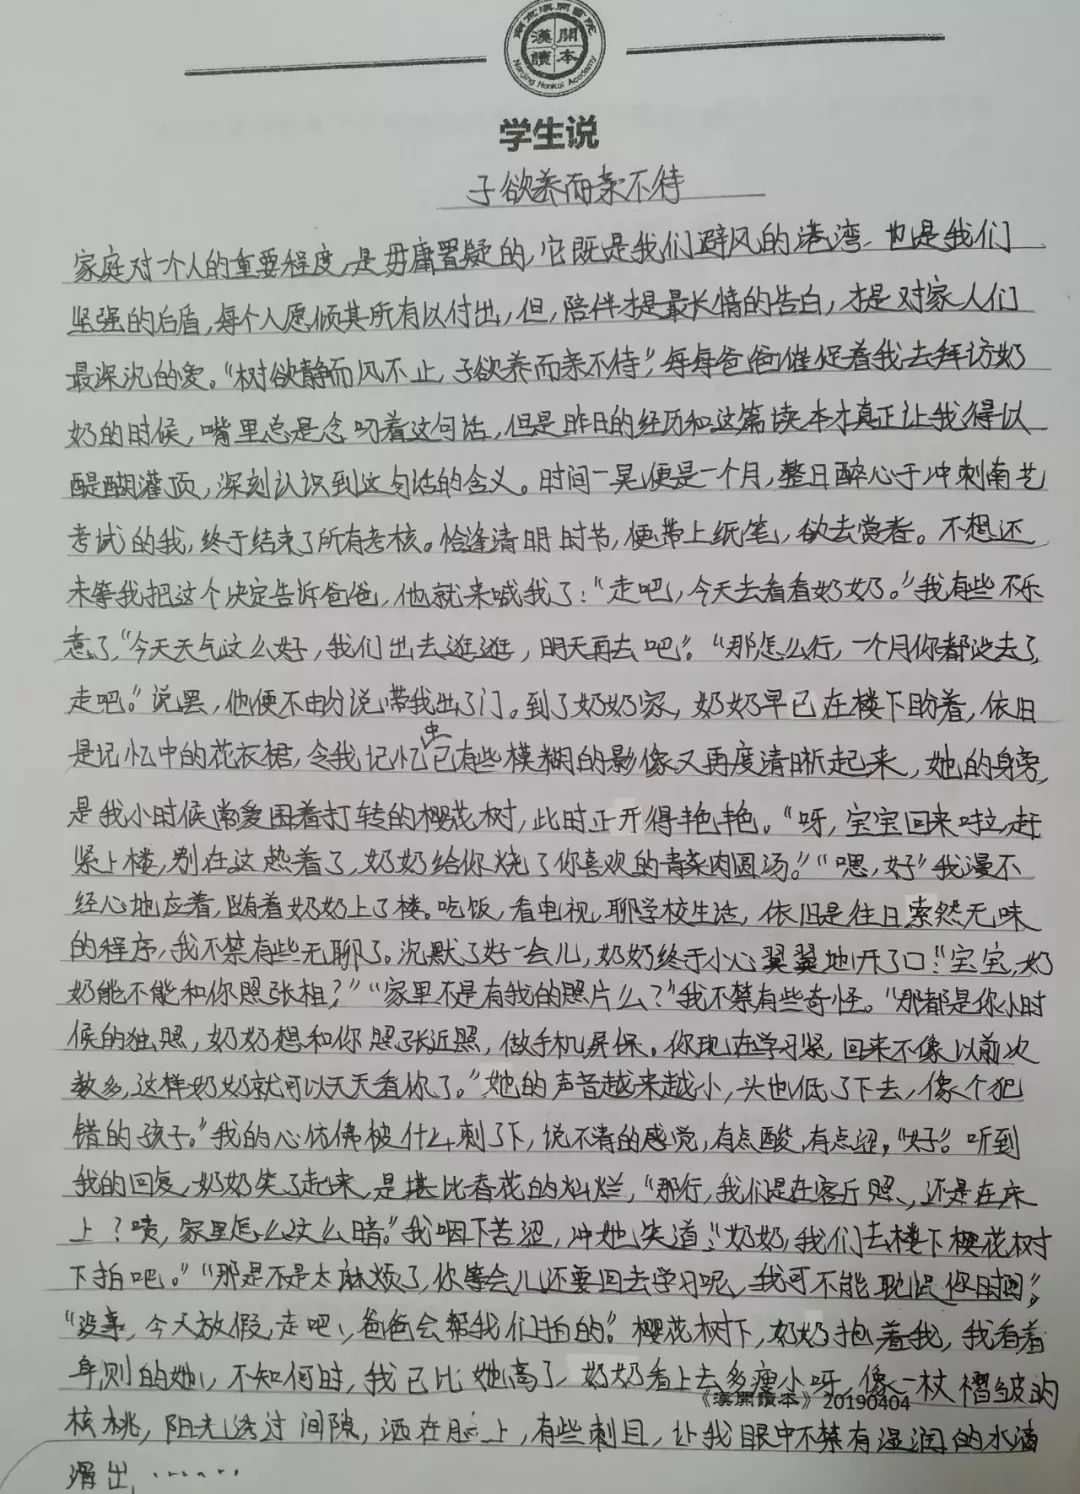 南京漢開書院
漢開
讀本
Nanjing Hankai Academy
学生说
子欲养而亲不待
家庭对一个人的重要程度,是毋庸置疑的,它既是我们避风的港湾,也是我们
坚强的后盾,每个人愿倾其所有以付出,但,陪伴才是最长情的告白,才是对家人们
最深沉的爱。“树欲静而风不止,子欲养而亲不待”,每每爸爸催促着我去拜访奶
奶的时候,嘴里总是念叨着这句话,但是昨日的经历和这篇读本才真正让我得以
醍醐灌顶,深刻认识到这句话的含义。时间一晃便是一个月,整日醉心于冲刺南艺
考试的我,终于结束了所有考核。恰逢清明时节,便带上纸笔,欲去赏春。不想还
未等我把这个决定告诉爸爸,他就来喊我了:“走吧,今天去看看奶奶。”我有些不乐
意了,“今天天气这么好,我们出去逛逛,明天再去吧”。“那怎么行,一个月你都没去了,
走吧。”说罢,他便不由分说带我出了门。到了奶奶家,奶奶早已在楼下盼着,依旧
是记忆中的花衣裙,令我记忆中已有些模糊的影像又再度清晰起来,她的身旁,
是我小时候常爱围着打转的樱花树,此时正开得艳艳。“呀,宝宝回来啦,赶
紧上楼,别在这热着了,奶奶给你烧了你喜欢的青菜肉圆汤。”“嗯,好”我漫不
经心地应着,随着奶奶上了楼。吃饭,看电视,聊学校生活,依旧是往日索然无味
的程序,我不禁有些无聊了。沉默了好一会儿,奶奶终于小心翼翼地开了口:“宝宝,奶
奶能不能和你照张相?”“家里不是有我的照片么?”我不禁有些奇怪。“那都是你小时
候的独照,奶奶想和你照张近照,做手机屏保。你现在学习紧,回来不像以前次
数多,这样奶奶就可以天天看你了。”她的声音越来越小,头也低了下去,像个犯
错的孩子。”我的心仿佛被什么刺了下,说不清的感觉,有点酸,有点涩,“好”。听到
我的回复,奶奶笑了起来,是堪比春花的灿烂,“那行,我们是在客厅照,还是在床
上?啧,家里怎么这么暗。”我咽下苦涩,冲她笑道:“奶奶,我们去楼下樱花树
下拍吧。”“那是不是太麻烦了,你等会儿还要回去学习呢,我可不能耽误你时间”,
“没事,今天放假,走吧,爸爸会帮我们拍的。”樱花树下,奶奶抱着我,我看着
身侧的她,不知何时,我已比她高了,奶奶看上去多瘦小呀,像一枚褶皱的
《漢開讀本》20190404
核桃,阳光透过间隙,洒在脸上,有些刺目,让我眼中不禁有湿润的水滴
滑出,······